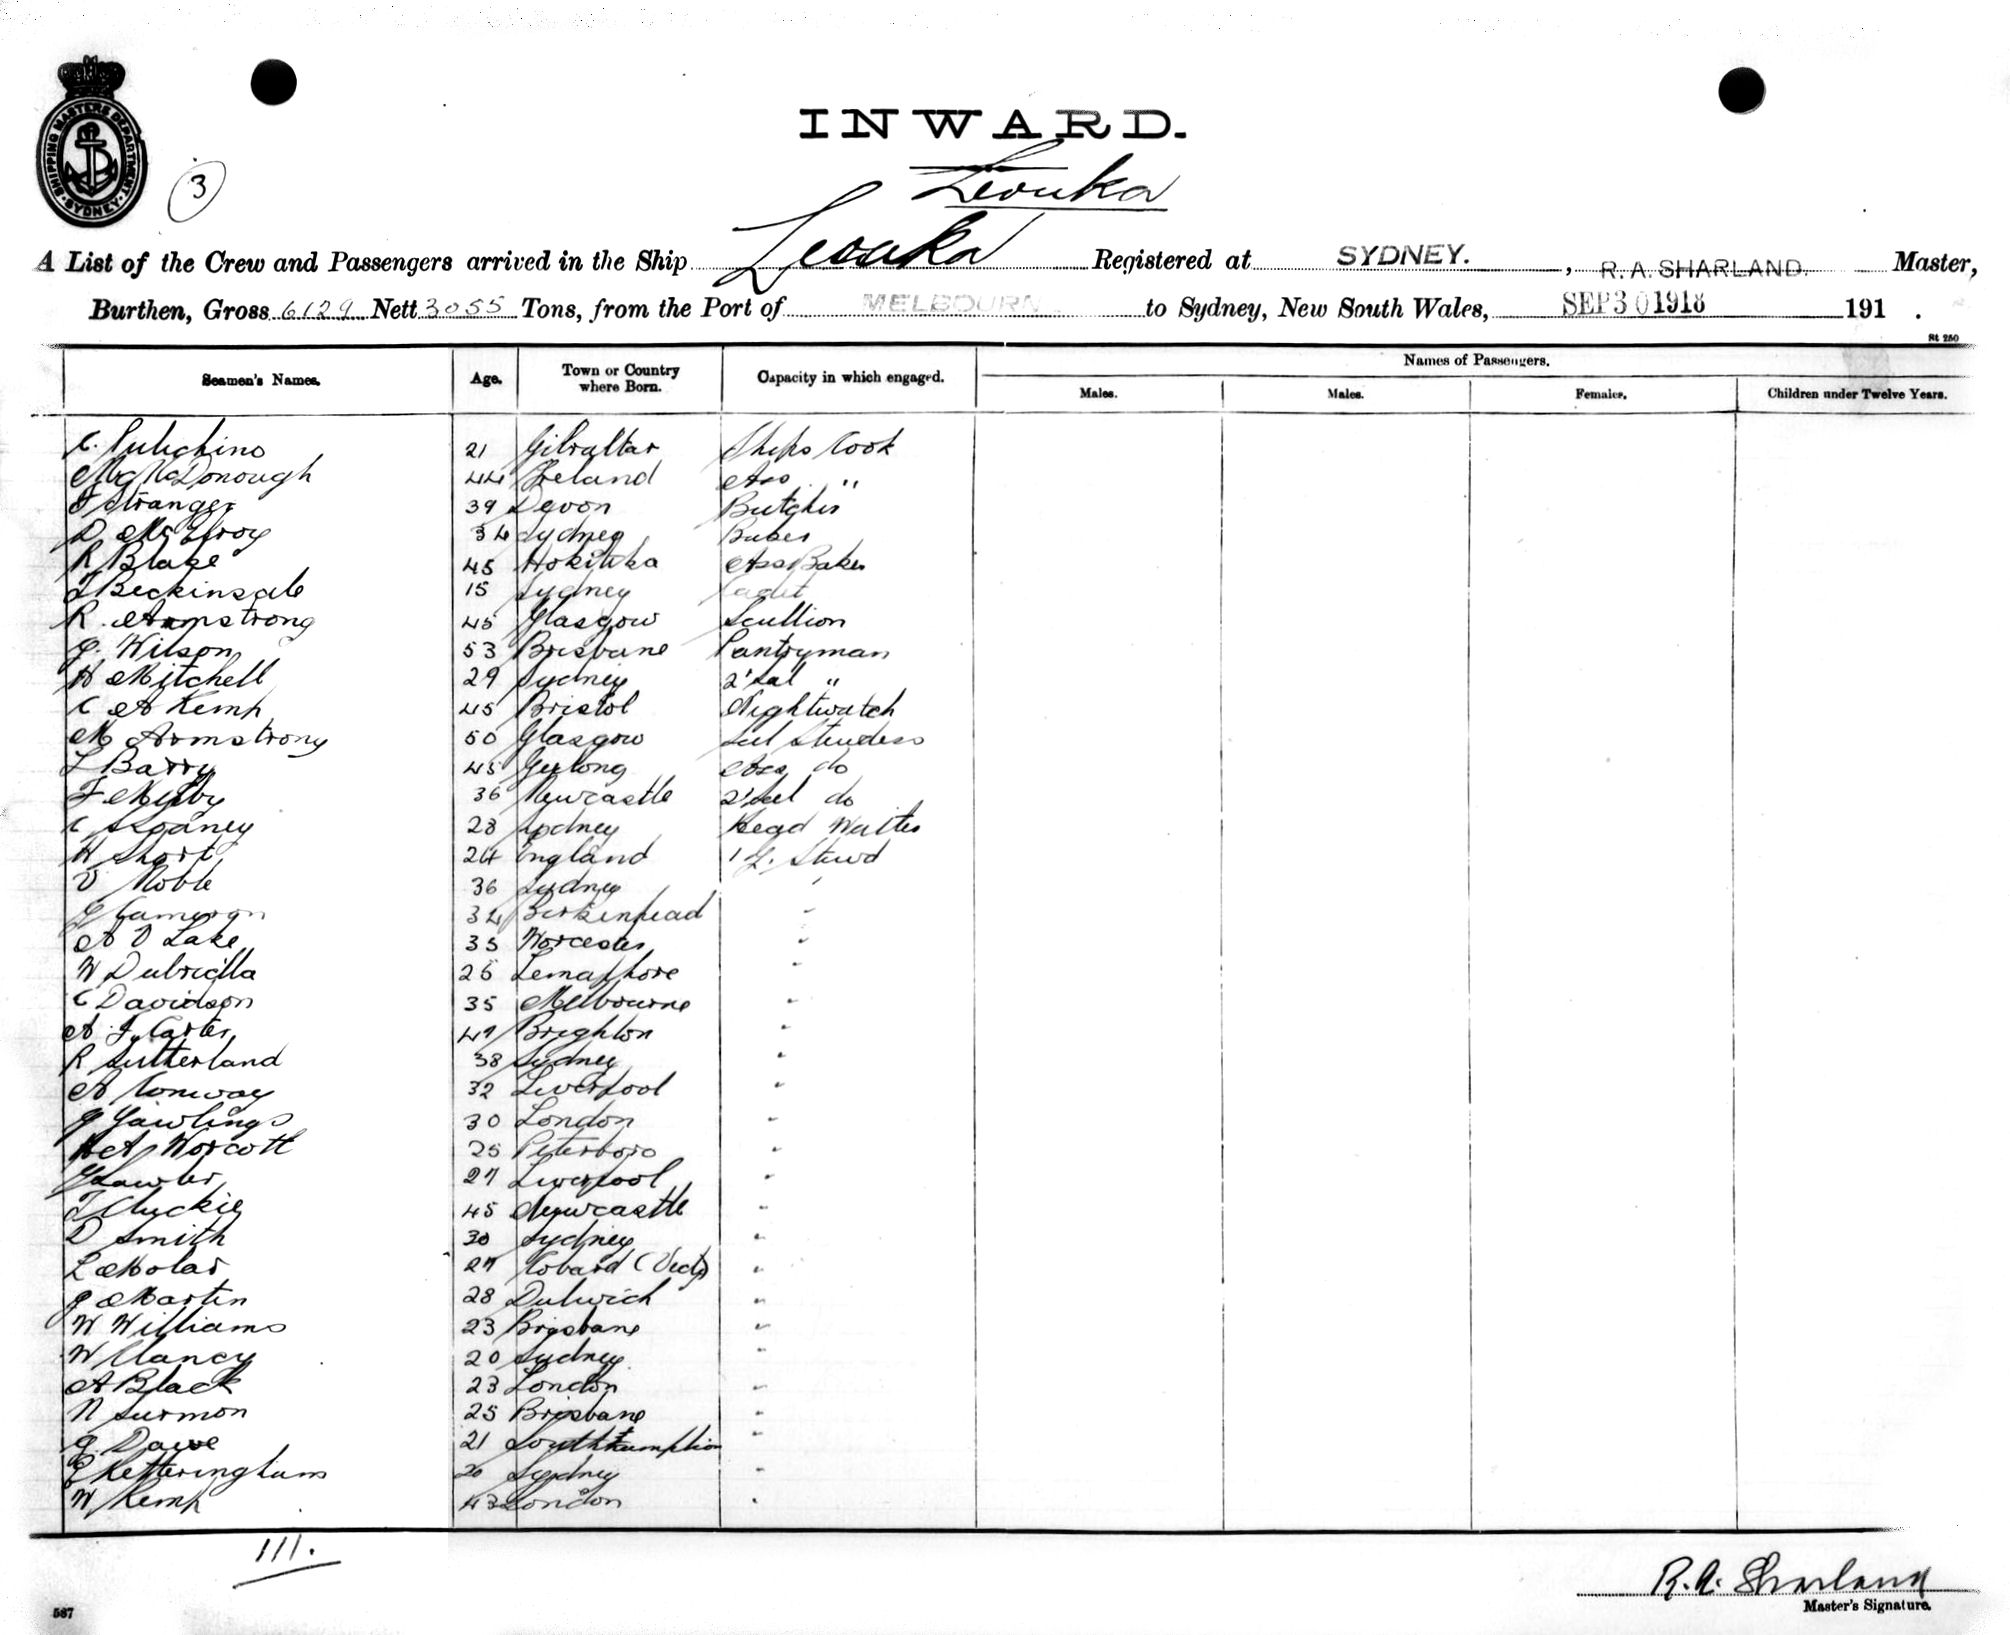 SHIPPING MASTERS DEPARTMENT
SYDNEY
3
INWARD.
Levuka
A List of the Crew and Passengers arrived in the Ship Levuka Registered at SYDNEY. , R. A. SHARLAND. Master,
Burthen, Gross 6129 Nett 3055 Tons, from the Port of MELBOURN to Sydney, New South Wales, SEP 30 1918 191 .
St 250
Seamen's Names. Age. Town or Country where Born. Capacity in which engaged. Names of Passengers.
Males. Males. Females. Children under Twelve Years.
C. 21 Gibraltar Ships Cook
M McDonough 44 Ireland Ass "
F Stranger 39 Devon Butcher
D McElroy 34 Sydney Baker
R Blake 45 Hokitika Ass Baker
T Beckinsale 15 Sydney Cadet
R. Armstrong 45 Glasgow Scullion
G. Wilson 53 Brisbane Pantryman
H Mitchell 29 Sydney 2'sal "
C A Kemp 45 Bristol Nightwatch
M Armstrong 50 Glasgow Sal Stewdess
L Barry 45 Geelong Ass do
F 36 Newcastle 2'sal do
C 28 Sydney Head Waiter
H Short 24 England 1 S. Stewd
V Noble 36 Sydney "
G Cameron 34 Birkenhead "
A V Lake 35 Worcester "
W 26 "
C Davidson 35 Melbourne "
A F Carter 47 Brighton "
R Sutherland 38 Sydney "
A Conway 32 Liverpool "
G 30 London "
H A Worcott 25 Peterboro "
G Lawler 27 Liverpool "
T Cluckie 45 Newcastle "
D Smith 30 Sydney "
L Molar 27 (Vict) "
G Martin 28 Dulwich "
W Williams 23 Brisbane "
W Clancy 20 Sydney "
A Black 23 London "
N Surmon 25 Brisbane "
G Dawe 21 Southhampton "
Ketteringham 20 Sydney "
W Kemp 43 London "
111.
R. A. Sharland
Master's Signature.
587